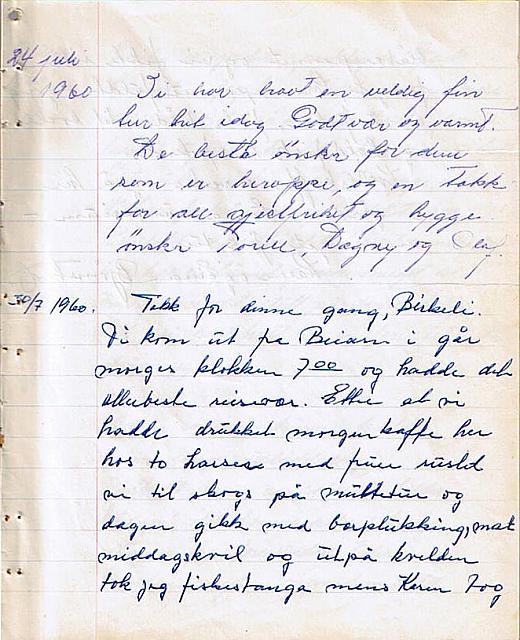 24 juli
1960 Vi har havt en veldig fin
tur hit idag. Godt vær og varmt.
De beste ønsker for dem
som er heroppe, og en takk
for all gjestfrihet og hygge
ønsker Torill, Dagny og Olaf.
30/7 1960. Takk for denne gang, Birkeli.
Vi kom ut fra Beiarn i går
morges klokken 7 00 og hadde det
allerbeste reisevær. Etter at vi
hadde drukket morgenkaffe her
hos to med fruer ruslet
vi til skogs på multetur og
dagen gikk med bærplukking, mat
middagskvil og utpå kvelden
tok jeg fiskestanga mens Karen tog